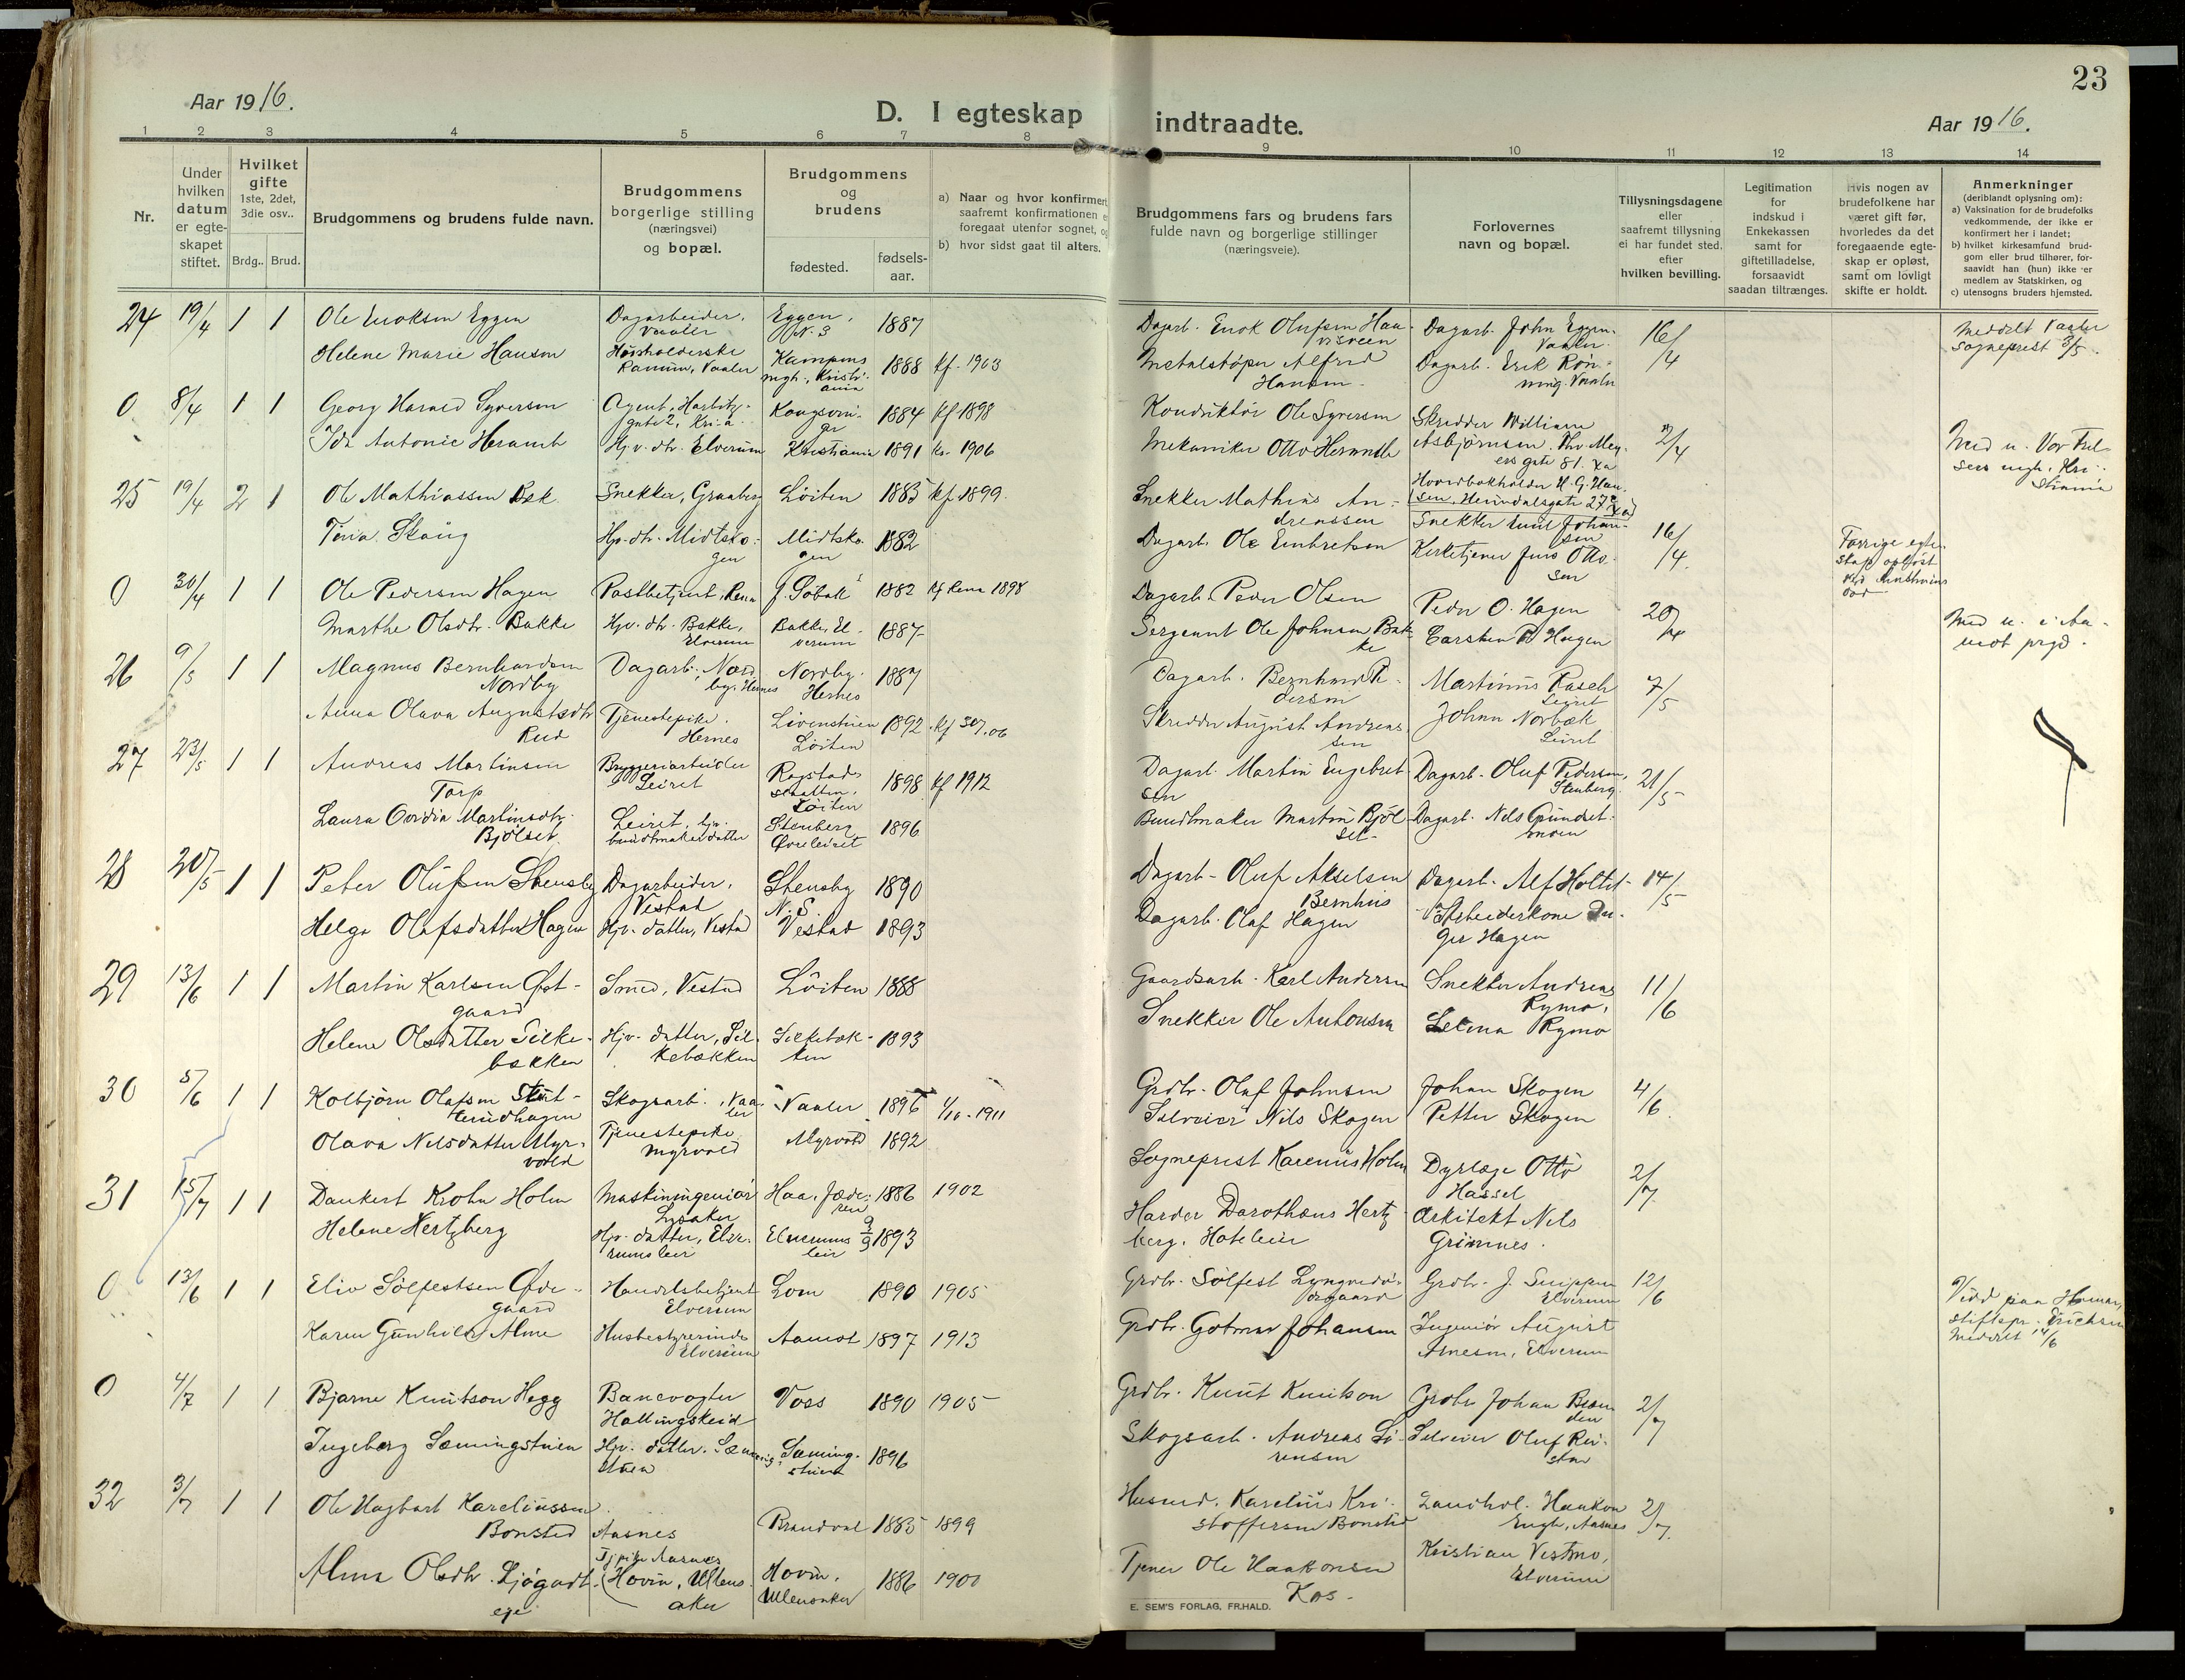 Aar 1916.
D. I egteskap indtraadte.
Aar 1916.
23
1 2 3 4 5 6 7 8 9 10 11 12 13 14
Nr.
Under
hvilken
datum
er egte-
skapet
stiftet.
Hvilket
gifte
1ste, 2det,
3die osv..
Brdg.. Brud.
Brudgommens og brudens fulde navn.
Brudgommens
borgerlige stilling
(næringsvei)
og bopæl.
Brudgommens
og
brudens
fødested.
fødsels-
aar.
a) Naar og hvor konfirmert
saafremt konfirmationen
foregaat utenfor sognet,
b) hvor sidst gaat til alters.
Brudgommens fars og brudens fars
fulde navn og borgerlige stillinger
(næringsveie).
Forlovernes
navn og bopæl.
Tillysningsdagene
eller
saafremt tillysning
ei har fundet sted.
efter
hvilken bevilling.
Legitimation
for
indskud i
Enkekassen
samt for
giftetilladelse,
forsaavidt
saadan tiltrænges.
Hvis nogen av
brudefolkene har
været gift før,
hvorledes da det
foregaaende egte-
skap er opløst,
samt om lovligt
skifte er holdt.
Anmerkninger
(deriblandt oplysning om):
a) Vaksination for de brudefolks
vedkommende, der ikke er
konfirmert her i landet;
b) hvilket kirkesamfund brud-
gom eller brud tilhører, for-
saavidt han (hun) ikke er
medlem av Statskirken, og
c) utensogns bruders hjemsted.
24 19/4 1 1 Ole Enoksen Eggen Dagarbeider, Vaaler Eggen, N. S 1887 Dagarb. Enok Olufsen Dagarb. John Eggen Vaaler 16/4 Meddelt Vaaler sogneprest 3/5.
Helene Marie Hansen Husholderske Vaaler Kampens mgh., Kristiania 1888 kf. 1903 Metalstøper Alfred Hansen Dagarb. Erik Rønning Vaaler
0 8/4 1 1 Georg Harald Syversen Agent, gate 2, Kr.a. Kongsvinger 1884 kf 1898 Konduktør Ole Syversen Skrædder William Asbjørnsen. Thv. Meyers gate 81. Xa 2/4
Ida Antonie Heramb Hjv. dtr. Elverum Kristiania 1891 1906 Mekaniker Otto Heramb Hovedbokholder H. G. Hansen 27 Xa
25 19/4 2 1 Ole Mathiassen Bek Snekker, Graaberg Løiten 1885 kf. 1899. Snekker Mathias Andreassen Snekker Emil Johansen 16/4.
Skaug Hjv. dtr. Midtskogen Midtskogen 1882 Dagarb. Ole Embretsen Kirketjener Jens Ottosen
0 30/4 1 1 Ole Pedersen Hagen Postbetjent, Rena 1882 kf Rena 1898 Dagarb. Peder Olsen Peder O. Hagen 20/4
Marthe Olsdtr. Bakke Hjv. dtr. Bakke, Elverum Bakke, Elverum 1887 Sergeant Ole Johnsen Bakke Carsten P. Hagen
26 9/5 1 1 Magnus Bernhardsen Nordby Dagarb. Nordby, Hernes Nordby. Hernes 1887 Dagarb. Bernhard Pedersen Martinus Rasch Leiret 7/5
Anna Olava Augustsdtr Rud Tjenestepike. Hernes Løiten 1892 Skrædder August Andreassen Johan Norbæk Leiret
27 23/5 1 1 Andreas Martinsen Torp Bryggeriarbeider Leiret Løiten 1898 kf 1912 Dagarb. Martin Engebretsen Dagarb. Oluf Pedersen, Stenberg. 21/5
Laura Ovidia Martinsdtr. Bjølset Leiret, hjv. bundtmakerdatter Stenberg Øvreleiret 1896 Bundtmaker Martin Bjølset Dagarb. Nils Grundsetmoen
28 20/5 1 1 Peter Olufsen Stensby Dagarbeider, Vestad Stensby N. S. 1890 Dagarb. Oluf Akselsen Bernhus Dagarb. Alf Holtet 14/5
Helga Olafsdatter Hagen Hjv. datter, Vestad Vestad 1893 Dagarb. Olaf Hagen Arbeiderkone Inger Hagen
29 13/6 1 1 Martin Karlsen Østgaard Smed, Vestad Løiten 1888 Gaardsarb. Karl Andersen Snekker Andreas Rymo, 11/6
Helene Olsdatter Silkebækken Hjv. datter, Silkebækken Silkebækken 1893 Snekker Ole Antonsen Selma Rymo
30 5/6 1 1 Kolbjørn Olafsen Skogsarb., Vaaler Vaaler 1896 1/10-1911 Grdbr. Olaf Johnsen Johan Skogen 4/6.
Olava Nilsdatter Myrvold Tjenestepike Myrvold Myrvold 1892 Selveier Nils Skogen Petter Skogen
31 15/7 1 1 Dankert Krohn Holm Maskiningeniør Lysaker Haa, Jæderen 1886 1902 Sogneprest Karenius Holm Dyrlæge Otto Hassel 2/7
Helene Hertzberg Hjv. datter, Elverumsleir Elverums leir 1893 Harder Dorothæus Hertzberg. Hoteleier Arkitekt Nils Grimnes.
0 13/6 1 1 Eliv Sølfestsen Ødegaard Handelsbetjent Elverum Lom 1890 1905 Grdbr. Sølfest Grdbr. J. Snippen Elverum 12/6 Viid paa Hamar, stiftspr. Erichsen Meddelt 14/6
Karen Gunhild Alme Husbestyrerinde Elverum Aamot 1897 1913 Grdbr. Gotmar Johansen Ingeniør August Arnesen, Elverum
0 4/7 1 1 Bjarne Knutson Hegg Banevogter Hallingskeid Voss 1890 1905 Grdbr. Knut Knutson Grdbr Johan 2/7
Ingeborg Sæmingstuen Hjv. datter. Sæmingstuen Sæmingstuen 1896 Skogsarb. Andreas Sørensen Selveier Oluf
32 3/7 1 1 Ole Hagbart Kareliussen Bonsted Aasnes Brandval 1885 1899 Husmd. Karelius Kristoffersen Bonsted Landhdl. Haakon Aasnes 2/7.
Alma Olsdtr. Tj.pike Aasnes (Hovin, Ullensaker Hovin, Ullensaker 1886 1900 Tjener Ole Haakonsen Kristian Vestmo, Elverum
E. SEM'S FORLAG, FR.HALD.